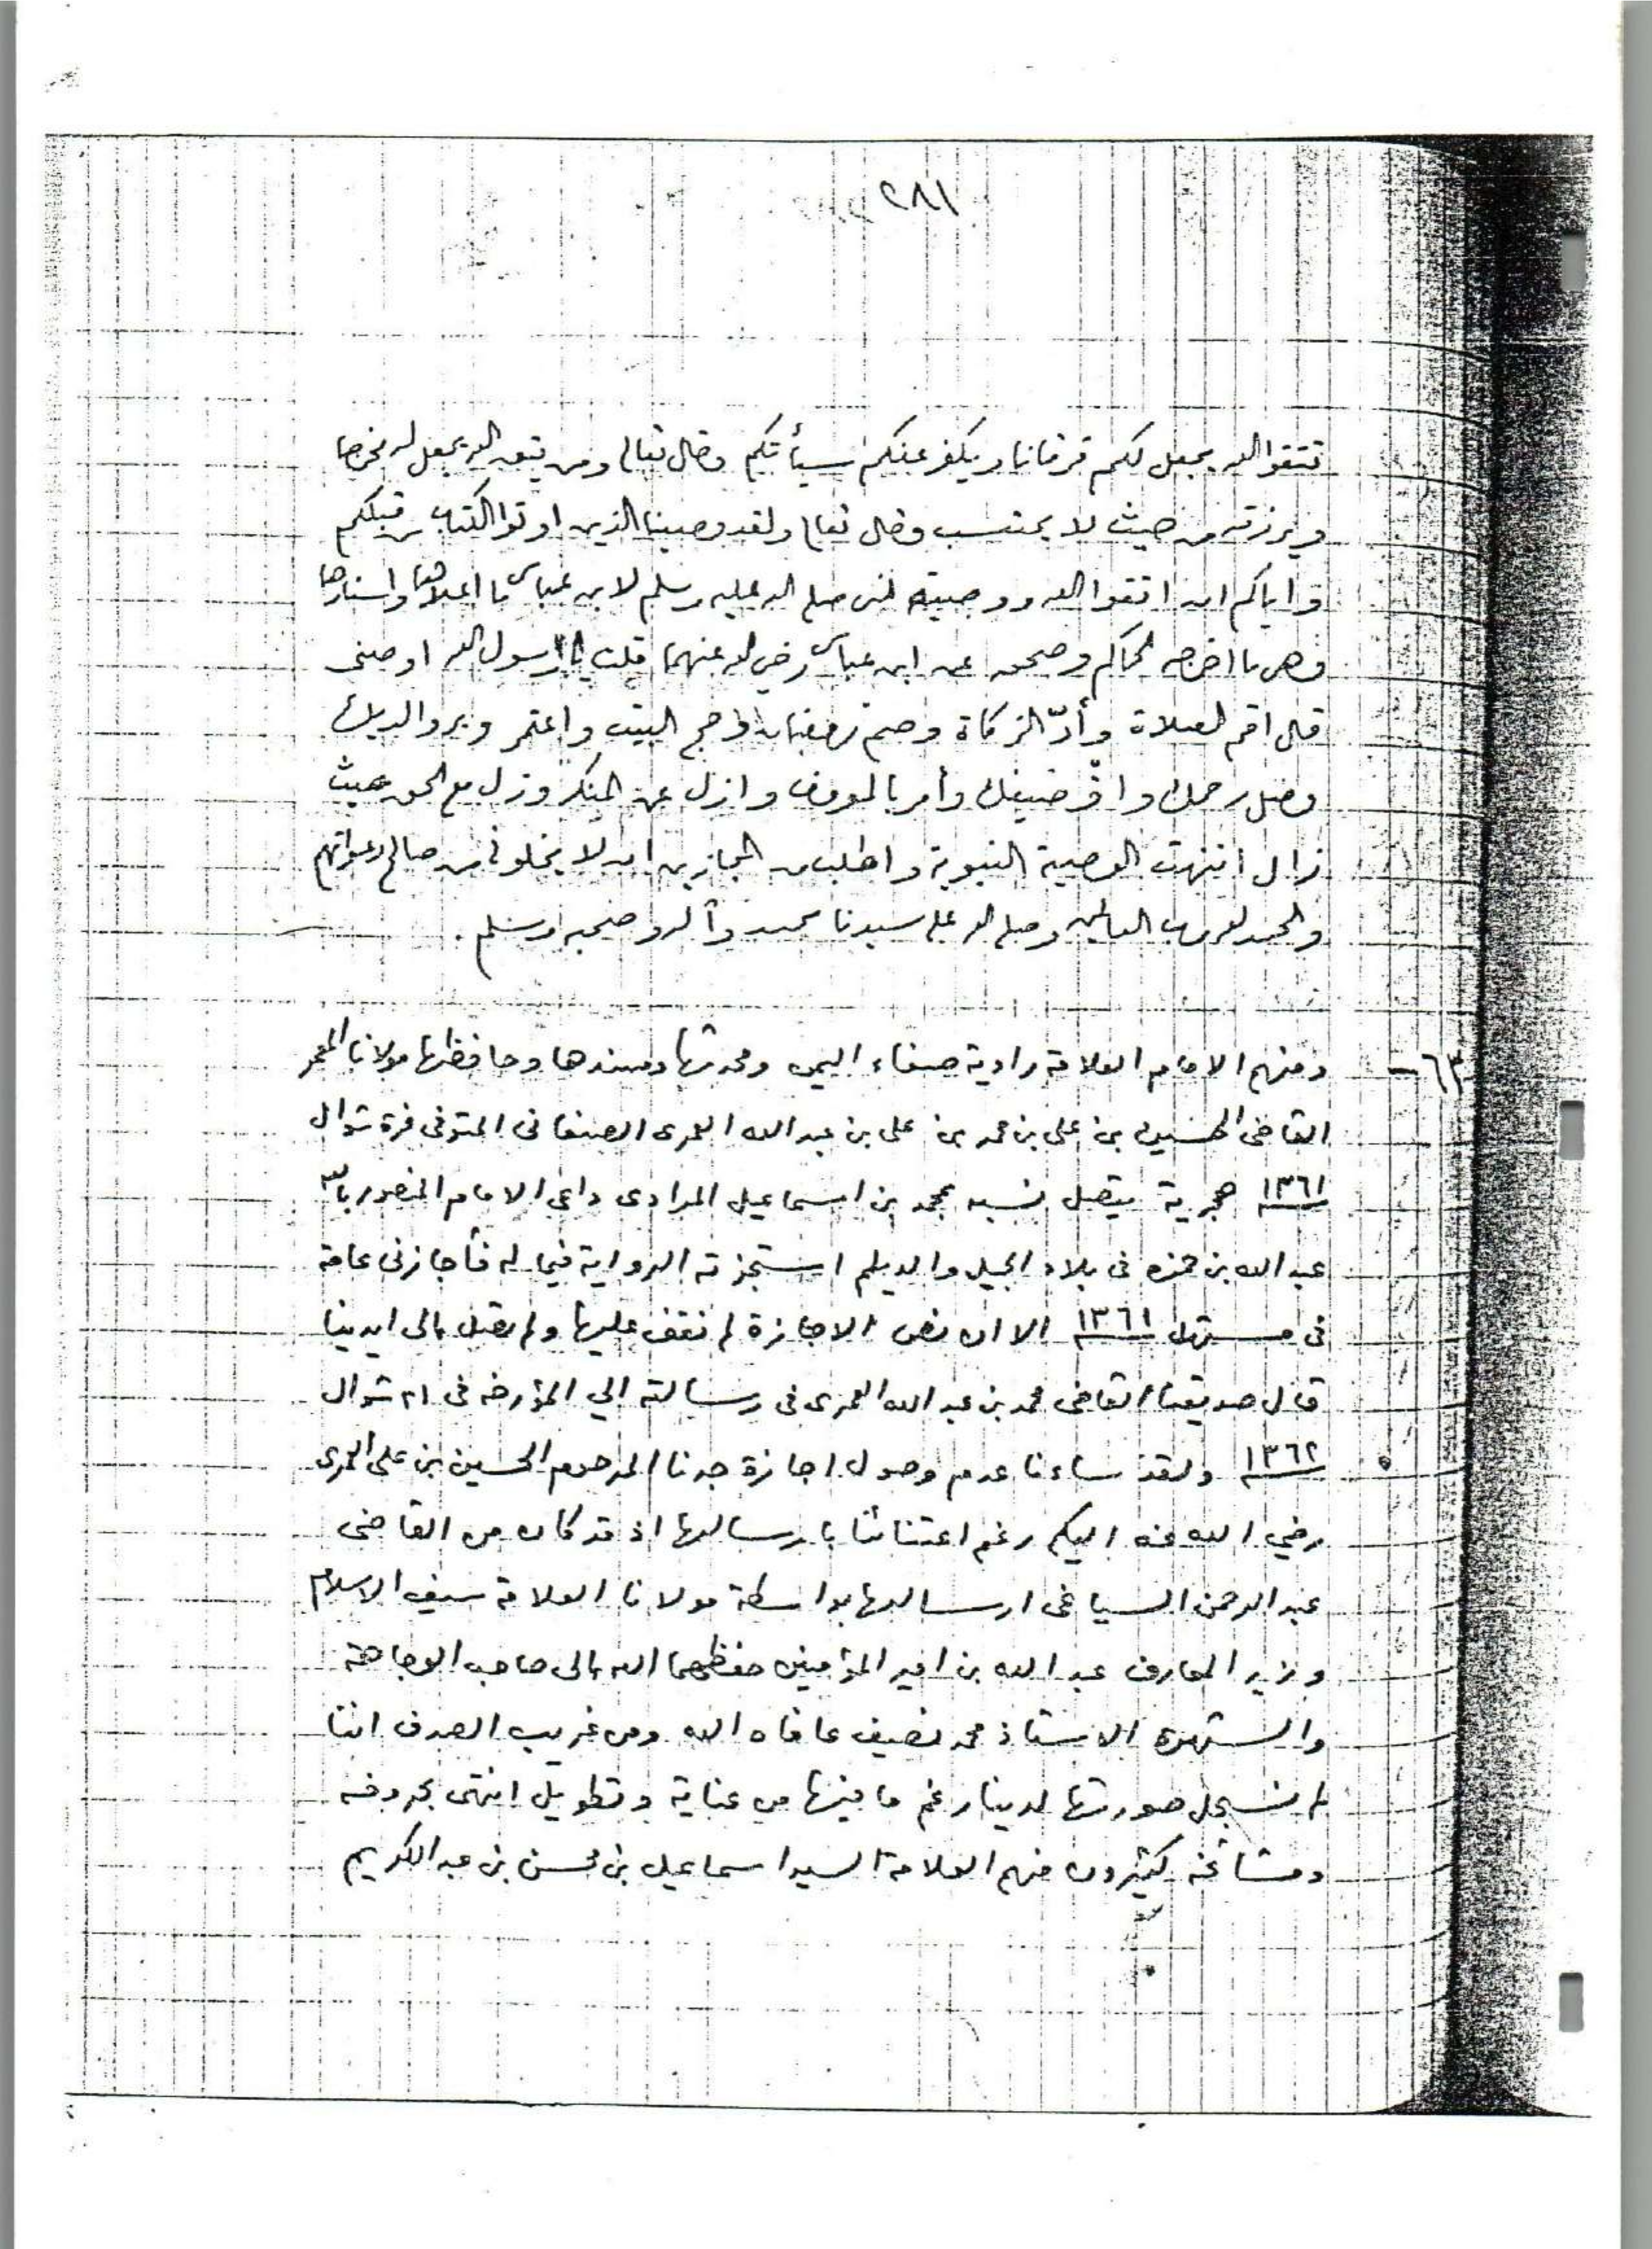 ٢٨١
تتقوا الله يجعل لكم فرقانا ويكفر عنكم سيأتكم وقال تعالى ومن يتق الله يجعل له مخرجا
ويرزقه من حيث لا يحتسب وقال تعالى ولقد وصينا الذين اوتوا الكتاب من قبلكم
واياكم ان اتقوا الله ووصية النبي صلى الله عليه وسلم لابن عباس ما اعلاها واسناها
وهي ما اخرجه الحاكم وصححه عن ابن عباس رضي الله عنهما قلت يا رسول الله اوصنى
قال اقم الصلاة وأدّ الزكاة وصم رمضان وحج البيت واعتمر وبر والديك
وصل رحمك واقر ضيفك وأمر بالمعروف وازل عن المنكر وزل مع الحق حيث
زال انتهت الوصية النبوية واطلب من المجازين ان لا يخلونى من صالح دعواتهم
والحمد لله رب العالمين وصلى الله على سيدنا محمد وآله وصحبه وسلم .
٦٣ - ومنهم الامام العلامة راوية صنعاء اليمن ومحدثها ومسندها وحافظها مولانا المعمر
القاضى الحسين بن على بن محمد بن على بن عبد الله العمرى الصنعانى المتوفى غرة شوال
١٣٦١ هجرية يتصل نسبه بمحمد بن اسماعيل المرادى داعى الامام المنصور بالله
عبد الله بن حمزه فى بلاد الجيل والديلم استجزته الرواية فيما له فأجازنى عامة
فى مستهل ١٣٦١ الا ان نص الاجازة لم نقف عليها ولم يصل الى ايدينا
قال صديقنا القاضى محمد بن عبد الله العمرى فى رسالته الي المؤرخه فى ٢١ شوال
١٣٦٢ ولقد ساءنا عدم وصول اجازة جدنا المرحوم الحسين بن على العمرى
رضي الله عنه اليكم رغم اعتنائنا بارسالها اذ قد كان من القاضى
عبد الرحمن السياغى ارسالها بواسطة مولانا العلامة سيف الاسلام
وزير المعارف عبد الله بن امير المؤمنين حفظهما الله الى صاحب الوجاهة
والشهرة الاستاذ محمد نصيف عافاه الله ومن غريب الصدف اننا
لم نسجل صورتها لدينا رغم ما فيها من عناية وتطويل انتهى بحروفه
ومشائخه كثيرون منهم العلامة السيد اسماعيل بن محسن بن عبد الكريم